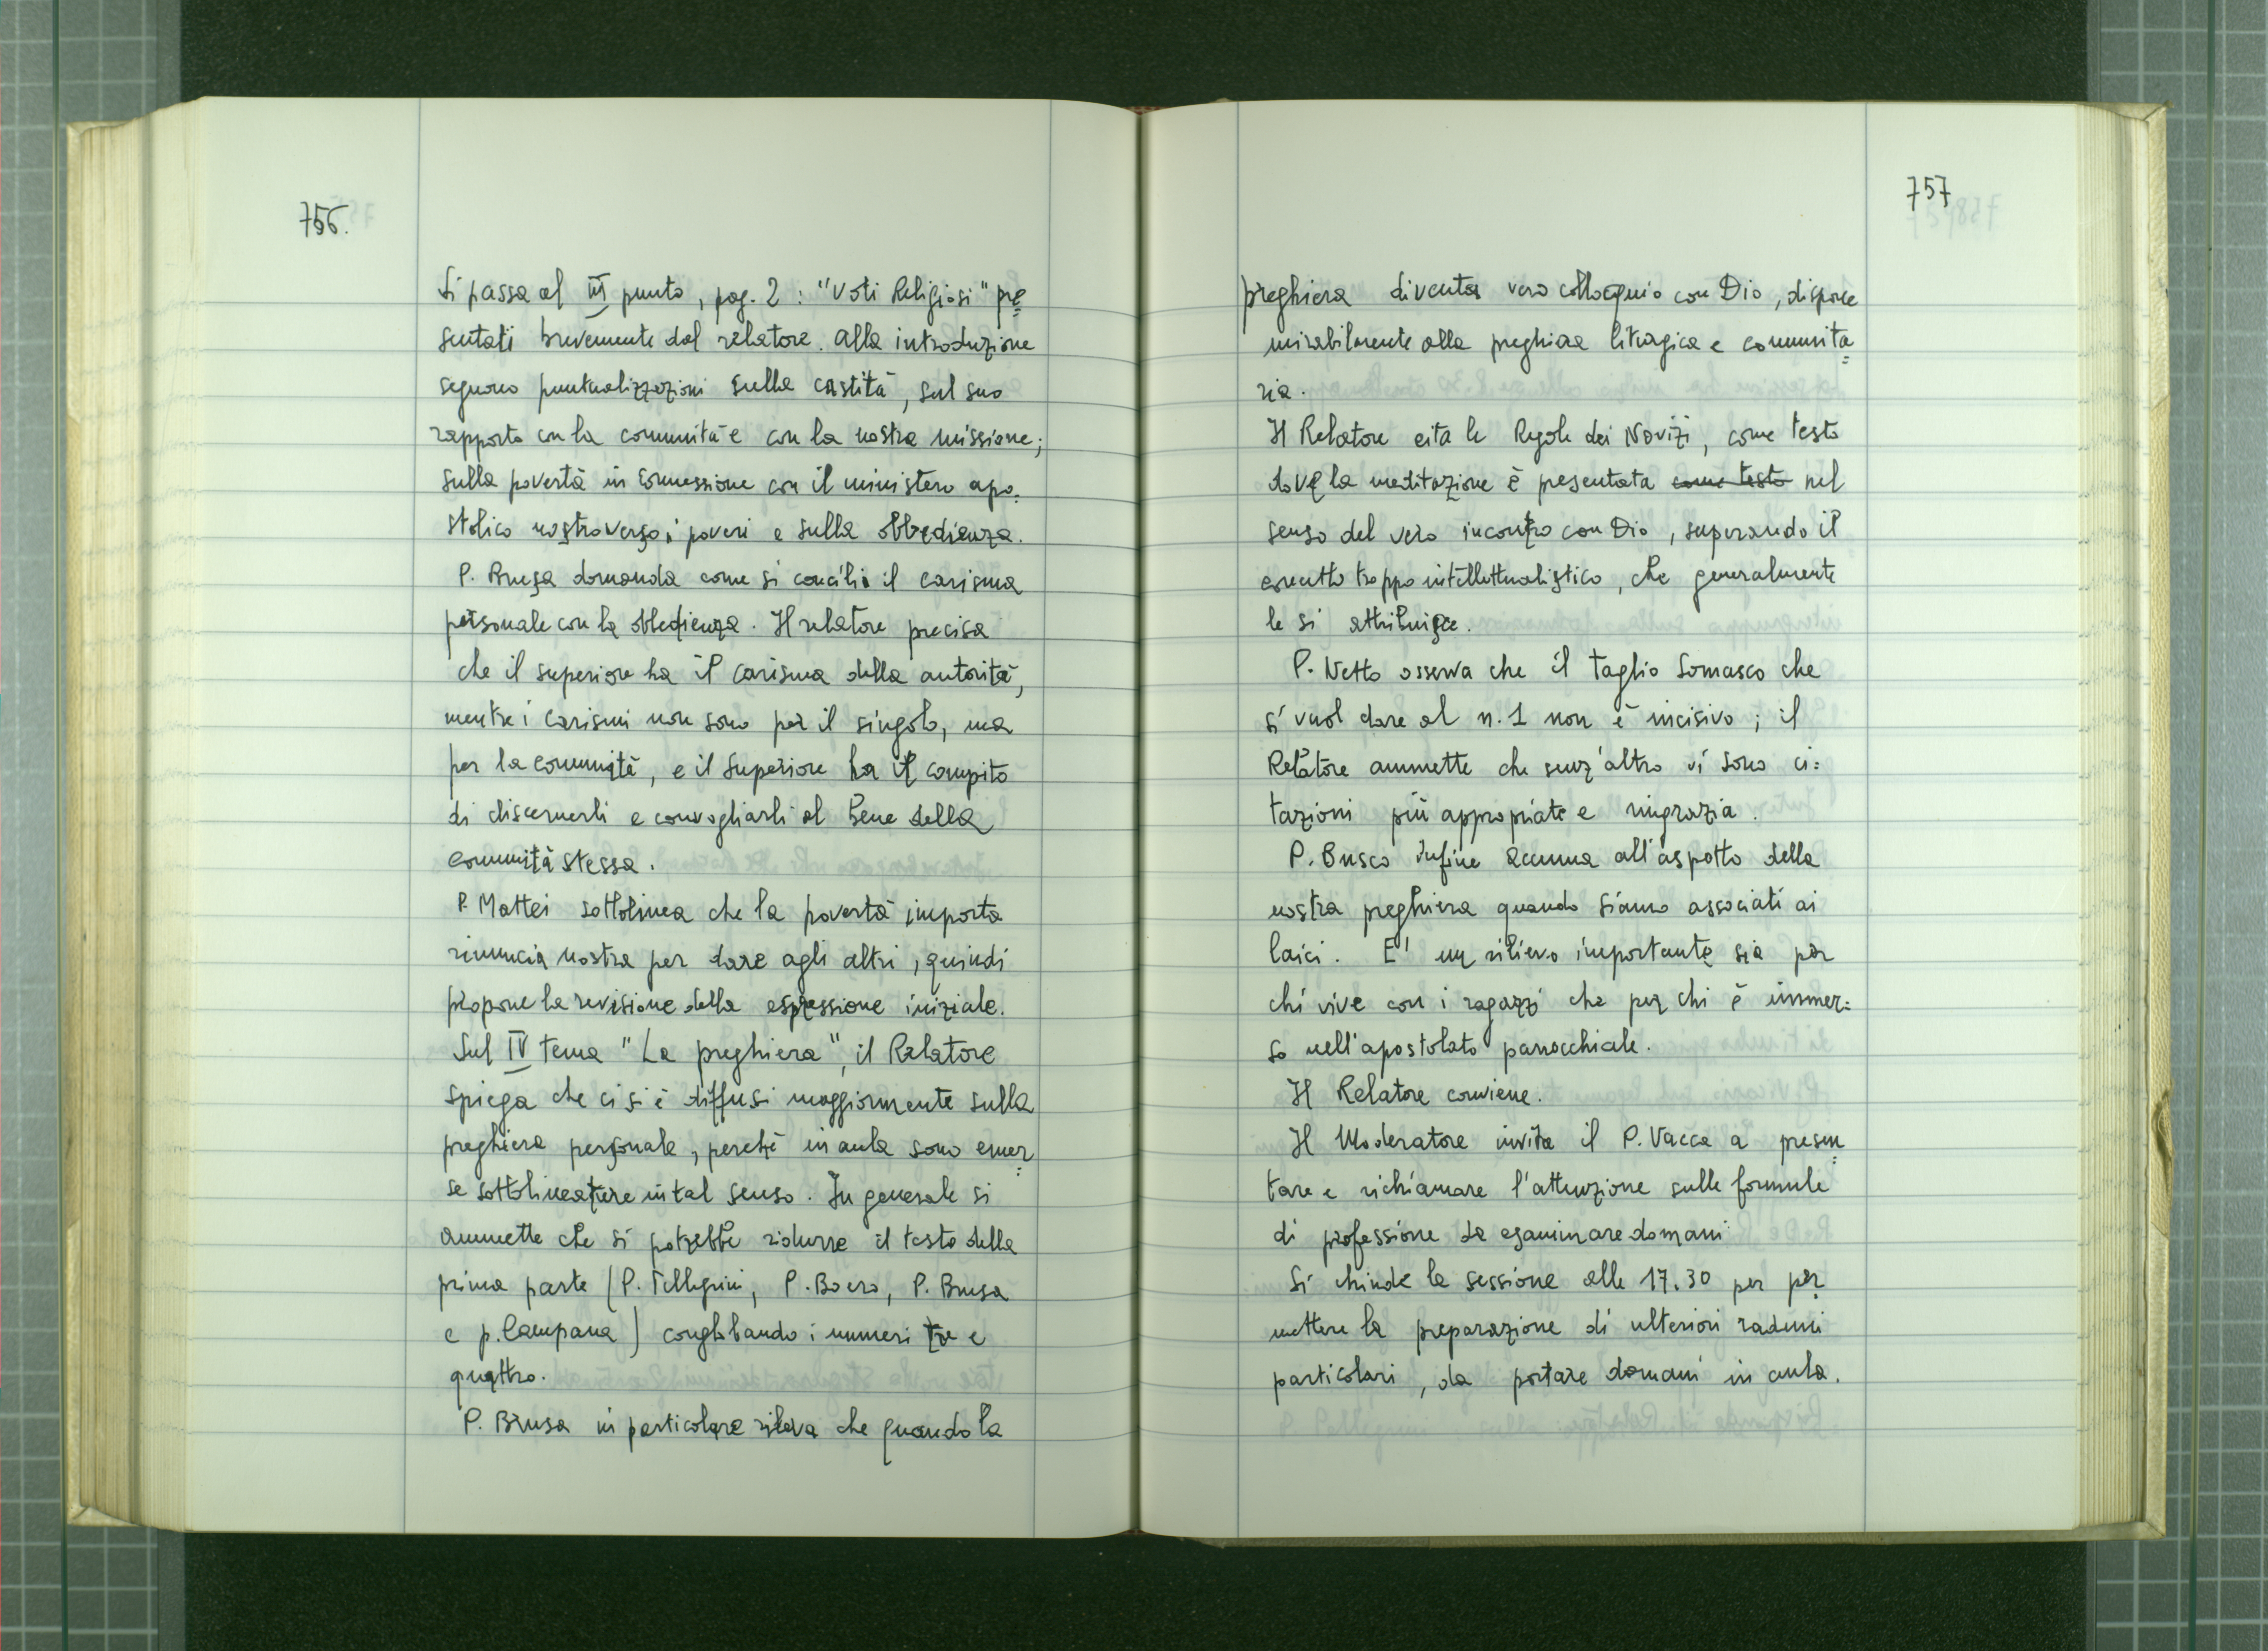 756.
Si passa al III punto, pag. 2 : "Voti Religiosi" pre=
sentati brevemente dal relatore. Alla introduzione
seguono puntualizzazioni sulla castità, sul suo
rapporto con la comunità e con la nostra missione;
sulla povertà in connessione con il ministero apo=
stolico nostro verso i poveri e sulla obbedienza.
P. Brusa domanda come si concili il carisma
personale con la obbedienza. Il relatore precisa
che il superiore ha il carisma della autorità,
mentre i carismi non sono per il singolo, ma
per la comunità, e il Superiore ha il compito
di discernerli e convogliarli al bene della
comunità stessa.
P. Mattei sottolinea che la povertà importa
rinuncia nostra per dare agli altri, quindi
propone la revisione della espressione iniziale.
Sul IV tema "La preghiera", il Relatore
spiega che ci si è diffusi maggiormente sulla
preghiera personale, perchè in aula sono emer=
se sottolineature in tal senso. In generale si
ammette che si potrebbe ridurre il testo della
prima parte (P. Pellegrini, P. Boero, P. Brusa
e p. Campana) conglobando i numeri tre e
quattro.
P. Brusa in particolare rileva che quando la
757
preghiera diventa vero colloquio con Dio, dispone
mirabilmente alla preghiera liturgica e comunita=
ria.
Il Relatore cita le Regole dei Novizi, come testo
dove la meditazione è presentata come testo nel
senso del vero incontro con Dio, superando il
concetto troppo intellettualistico, che generalmente
le si attribuisce.
P. Netto osserva che il taglio Somasco che
si vuol dare al n. 1 non è incisivo; il
Relatore ammette che senz'altro vi sono ci=
tazioni più appropriate e ringrazia.
P. Busco infine accenna all'aspetto della
nostra preghiera quando siamo associati ai
laici. E' un rilievo importante sia per
chi vive con i ragazzi che per chi è immer=
so nell'apostolato parrocchiale.
Il Relatore conviene.
Il Moderatore invita il P. Vacca a presen=
tare e richiamare l'attenzione sulle formule
di professione da esaminare domani
Si chiude la sessione alle 17.30 per per=
mettere la preparazione di ulteriori raduni
particolari, da portare domani in aula.